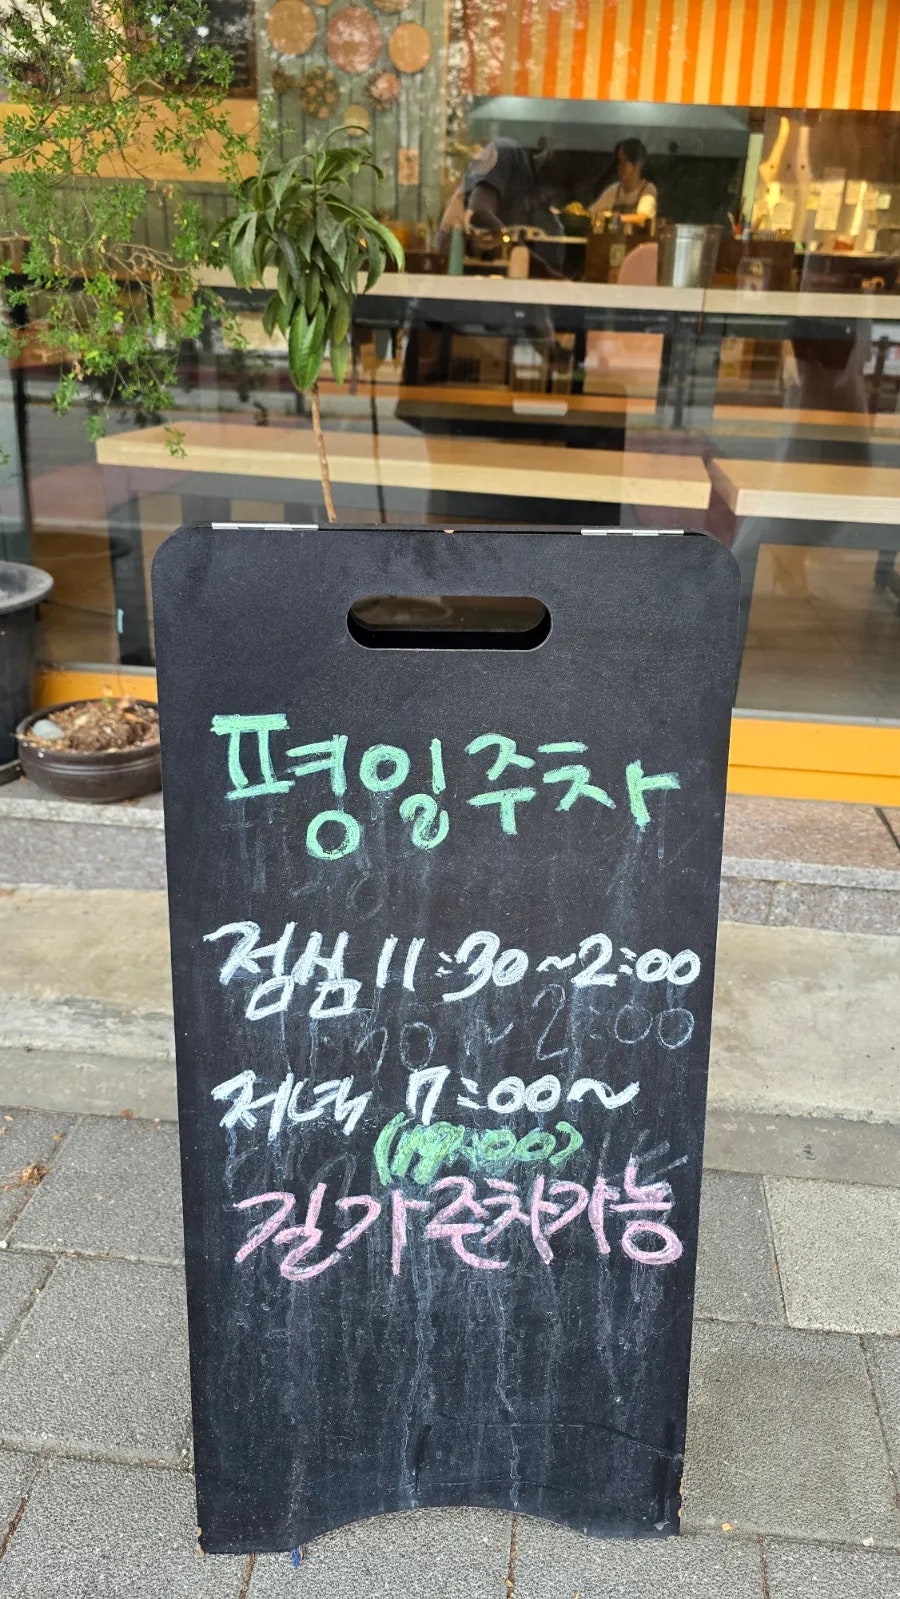 평일주차
점심 11:30~2:00
저녁 7:00~
(19:00)
길가주차가능